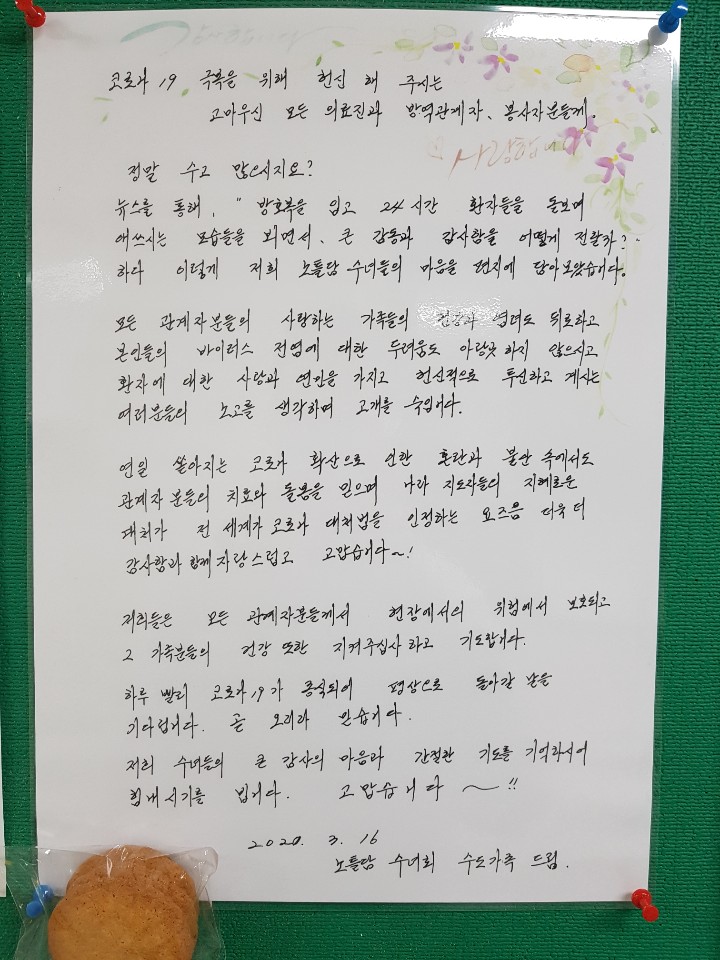 감사합니다
코로나 19 극복을 위해 헌신 해 주시는
고마우신 모든 의료진과 방역관계자, 봉사자분들께.
사랑합니다
정말 수고 많으시지요?
뉴스를 통해, " 방호복을 입고 24시간 환자들을 돌보며
애쓰시는 모습들을 보면서, 큰 감동과 감사함을 어떻게 전할까?..
하다 이렇게 저희 노틀담 수녀들의 마음을 편지에 담아보았습니다.
모든 관계자분들의 사랑하는 가족들의 건강과 염려도 뒤로하고
본인들의 바이러스 전염에 대한 두려움도 아랑곳 하지 않으시고
환자에 대한 사랑과 연민을 가지고 헌신적으로 투신하고 계시는
여러분들의 노고를 생각하며 고개를 숙입니다.
연일 쏟아지는 코로나 확산으로 인한 혼란과 불안 속에서도
관계자 분들의 치료와 돌봄을 믿으며 나라 지도자들의 지혜로운
대처가 전 세계가 코로나 대처법을 인정하는 요즈음 더욱 더
감사함과 함께 자랑스럽고 고맙습니다~!
저희들은 모든 관계자분들께서 현장에서의 위험에서 보호되고
그 가족분들의 건강 또한 지켜주십사 하고 기도합니다.
하루 빨리 코로나19가 종식되어 평상으로 돌아갈 날을
기다립니다. 곧 오리라 믿습니다.
저희 수녀들의 큰 감사의 마음과 간절한 기도를 기억하시어
힘내시기를 빕니다. 고맙습니다 ~!!
2020. 3. 16
노틀담 수녀회 수도가족 드림.